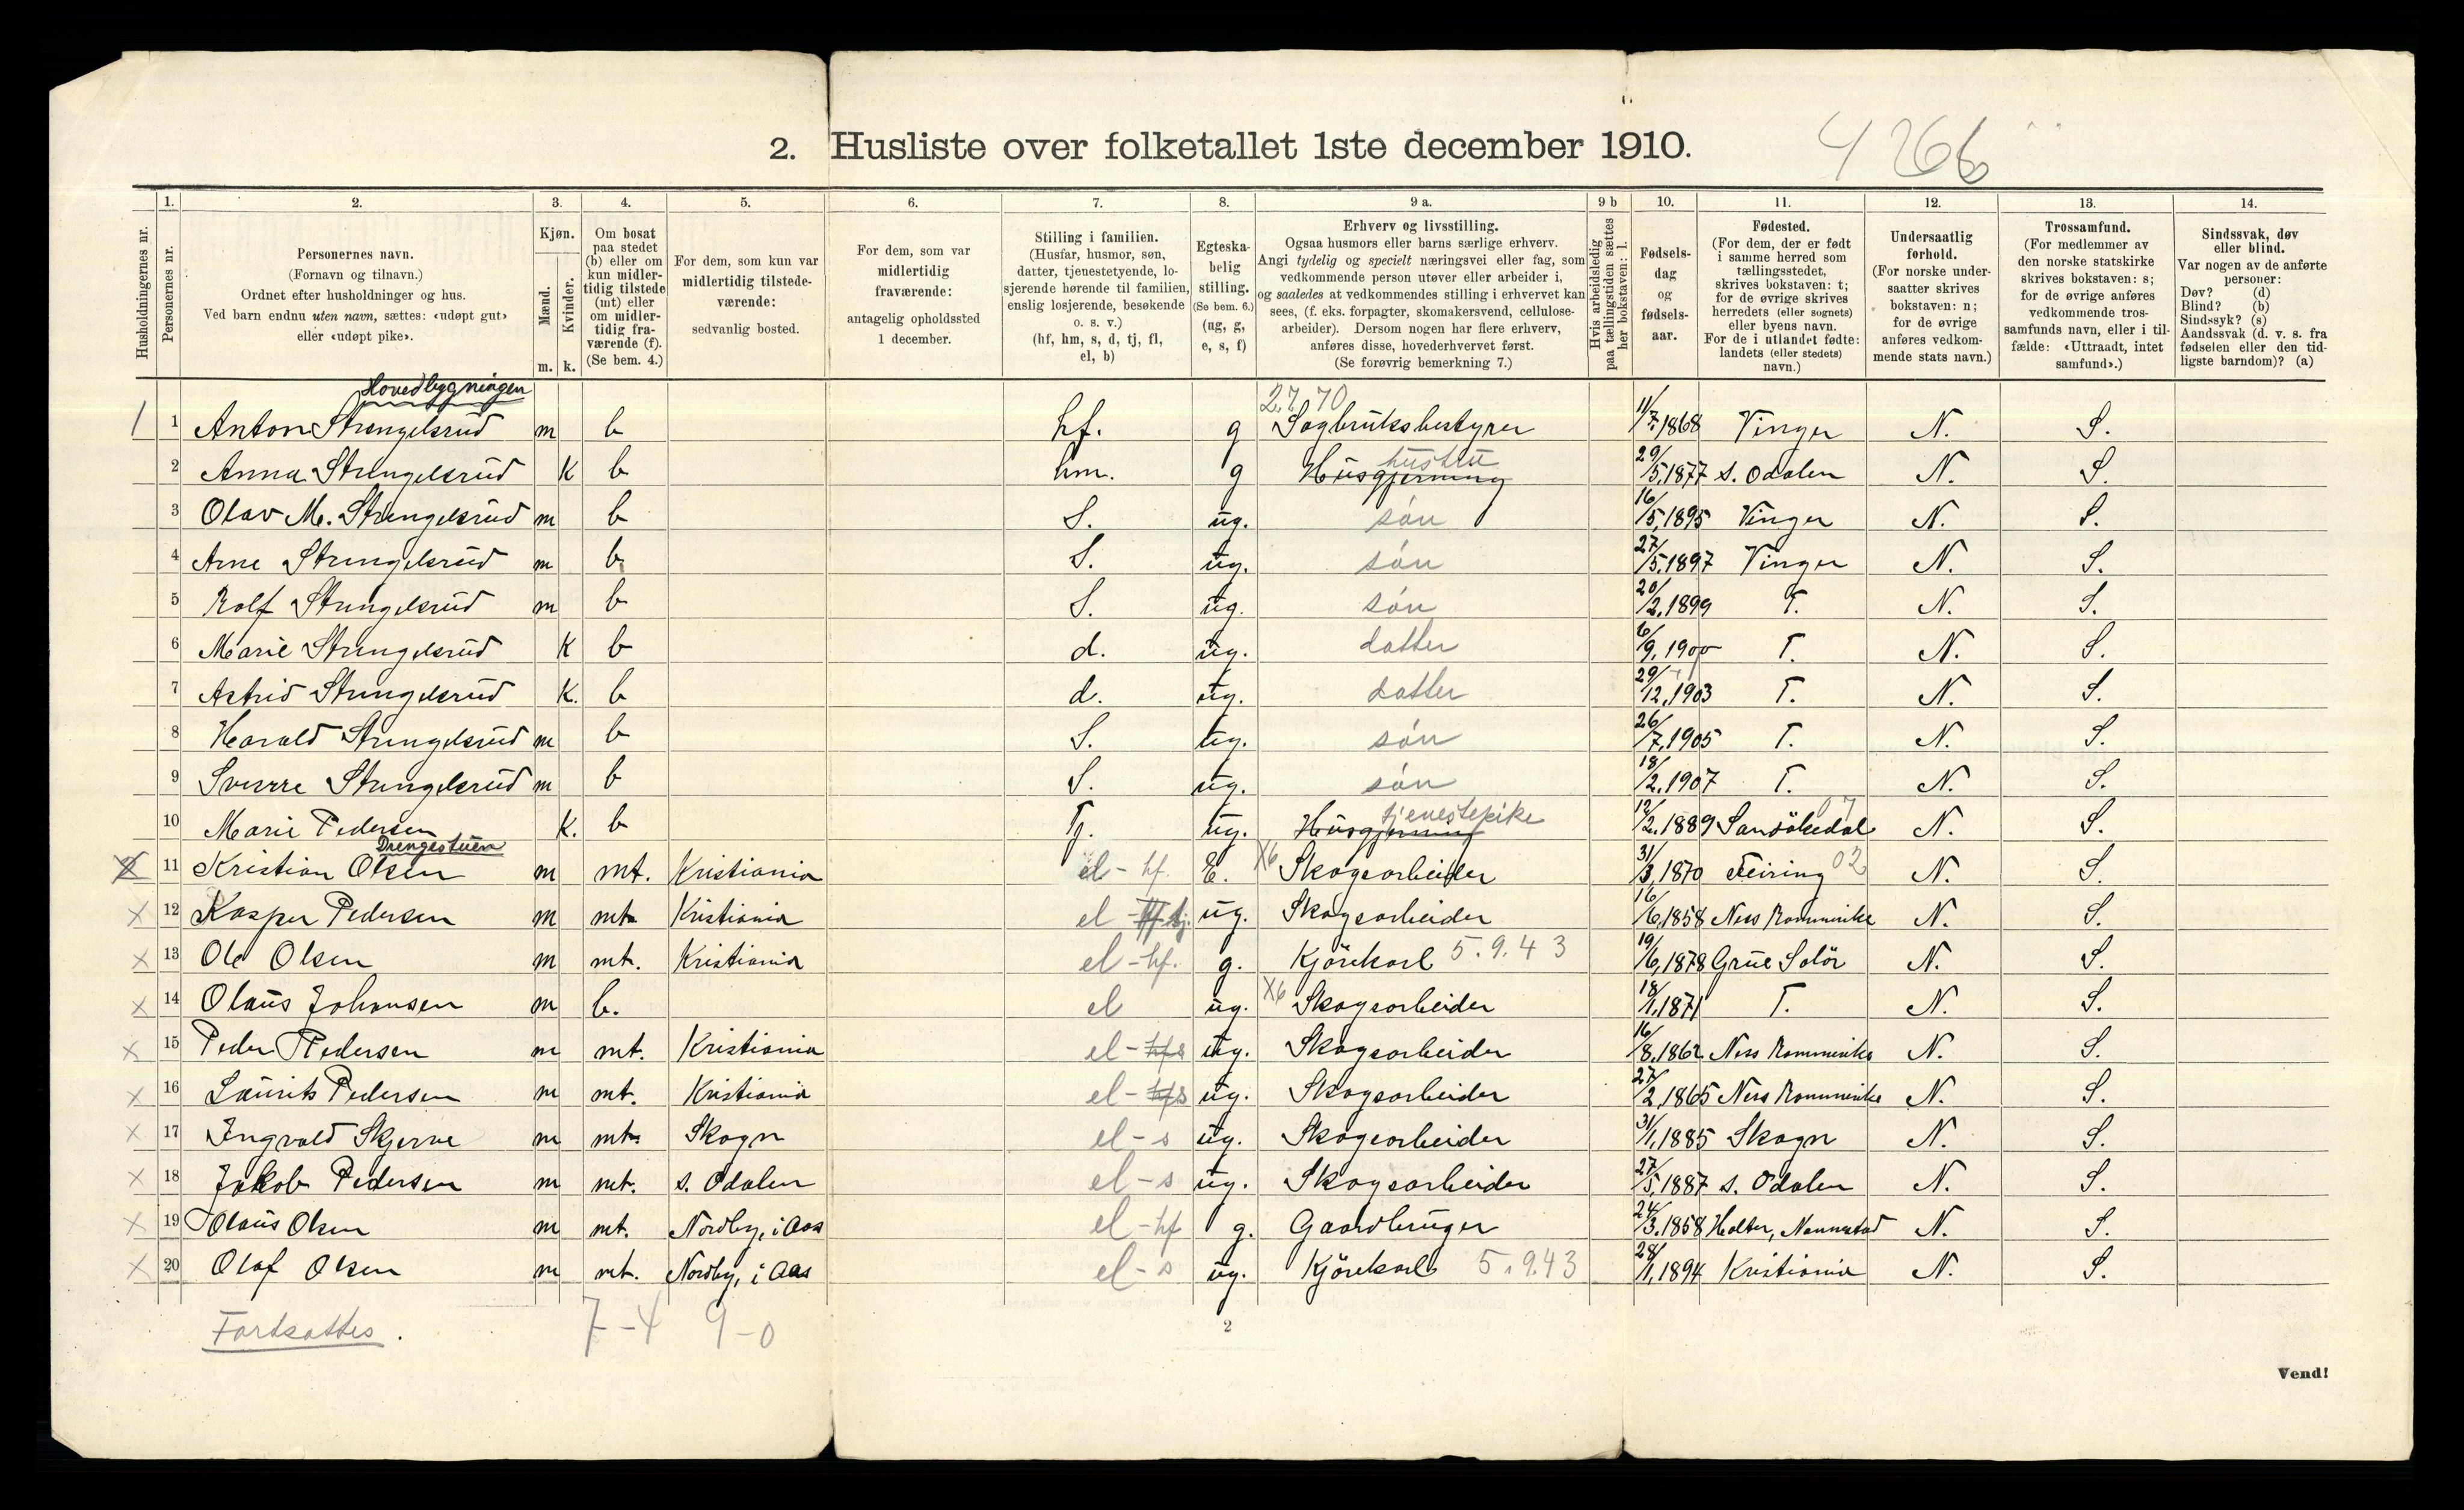 2. Husliste over folketallet 1ste december 1910.
4266
Husholdningernes nr.
1. Personernes nr.
2. Personernes navn.
(Fornavn og tilnavn.)
Ordnet efter husholdninger og hus.
Ved barn endnu uten navn, sættes: «udøpt gut»
eller «udøpt pike».
3. Kjøn.
Mænd. m.
Kvinder. k.
4. Om bosat
paa stedet
(b) eller om
kun midler-
tidig tilstede
(mt) eller
om midler-
tidig fra-
værende (f).
(Se bem. 4.)
5. For dem, som kun var
midlertidig tilstede-
værende:
sedvanlig bosted.
6. For dem, som var
midlertidig
fraværende:
antagelig opholdssted
1 december.
7. Stilling i familien.
(Husfar, husmor, søn,
datter, tjenestetyende, lo-
sjerende hørende til familien,
enslig losjerende, besøkende
o. s. v.)
(hf, hm, s, d, tj, fl,
el, b)
8. Egteska-
belig
stilling.
(Se bem. 6.)
(ug, g,
e, s, f)
9 a. Erhverv og livsstilling.
Ogsaa husmors eller barns særlige erhverv.
Angi tydelig og specielt næringsvei eller fag, som
vedkommende person utøver eller arbeider i,
og saaledes at vedkommendes stilling i erhvervet kan
sees, (f. eks. forpagter, skomakersvend, cellulose-
arbeider). Dersom nogen har flere erhverv,
anføres disse, hovederhvervet først.
(Se forøvrig bemerkning 7.)
9 b Hvis arbeidsledig
paa tællingstiden sættes
her bokstaven: l.
10. Fødsels-
dag
og
fødsels-
aar.
11. Fødested.
(For dem, der er født
i samme herred som
tællingsstedet,
skrives bokstaven: t;
for de øvrige skrives
herredets (eller sognets)
eller byens navn.
For de i utlandet fødte:
landets (eller stedets)
navn.)
12. Undersaatlig
forhold.
(For norske under-
saatter skrives
bokstaven: n;
for de øvrige
anføres vedkom-
mende stats navn.)
13. Trossamfund.
(For medlemmer av
den norske statskirke
skrives bokstaven: s;
for de øvrige anføres
vedkommende tros-
samfunds navn, eller i til-
fælde: «Uttraadt, intet
samfund».)
14. Sindssvak, døv
eller blind.
Var nogen av de anførte
personer:
Døv? (d)
Blind? (b)
Sindssyk? (s)
Aandssvak (d. v. s. fra
fødselen eller den tid-
ligste barndom)? (a)
Hovedbygningen 27.70
1 1 Anton Strengelsrud m b hf. g Sagbruksbestyrer 11/7.1868 Vinger N. S.
hustru
2 Anna Strengelsrud K b hm. g Husgjerning 29/5.1877 s. Odalen N. S.
3 Olav M. Strengelsrud m b S. ug. søn 16/5.1895 Vinger N. S.
4 Arne Strengelsrud m b S. ug. søn 27/5.1897 Vinger N. S.
5 Rolf Strengelsrud m b S. ug. søn 20/2.1899 T. N. S.
6 Marie Strengelsrud K b d. ug. datter 6/9.1900 T. N. S.
7 Astrid Strengelsrud K. b d. ug. datter 29/12.1903 T. N. S.
8 Harald Strengelsrud m b S. ug. søn 26/7.1905 T. N. S.
9 Sverre Strengelsrud m b S. ug. søn 18/2.1907 T. N. S.
tjenestepike 07
10 Marie Pedersen K. b Tj. ug. Husgjerning 12/2.1889 Sansökedal N. S.
Drengestuen
11 Kristian Olsen m mt. Kristiania el - hf. E. X6 Skogsarbeider 31/3.1870 Feiring 02 N. S.
x 12 Kasper Pedersen m mt Kristiania el ug. Skogsarbeider 16/6.1858 Ness Rommerike N. S.
x 13 Ole Olsen m mt. Kristiania el - hf. g. Kjörekarl 5.9.43 19/6.1878 Grue Solör N. S.
x 14 Olaus Johansen m b. el ug. X6 Skogsarbeider 18/1.1871 T. N. S.
x 15 Peder Pedersen m mt. Kristiania el - hfs ug. Skogsarbeider 16/8.1862 Ness Rommerike N. S.
x 16 Laurits Pedersen m mt. Kristiania el - hfs ug. Skogsarbeider 27/2.1865 Ness Rommerike N. S.
x 17 Ingvald Skjerve m mt Skogn el - s ug. Skogsarbeider 31/1.1885 Skogn N. S.
x 18 Jakob Pedersen m mt. s. Odalen el - s ug. Skogsarbeider 27/5.1887 s. Odalen N. S.
x 19 Olaus Olsen m mt. Nordby, i Aas el - hf g. Gaardbruger 24/3.1858 Holter, Nannestad N. S.
x 20 Olaf Olsen m mt. Nordby, i Aas el - s ug. Kjörekarl 5.9.43 28/1.1894 Kristiania N. S.
Fortsattes. 7-4 9-0
2
Vend!